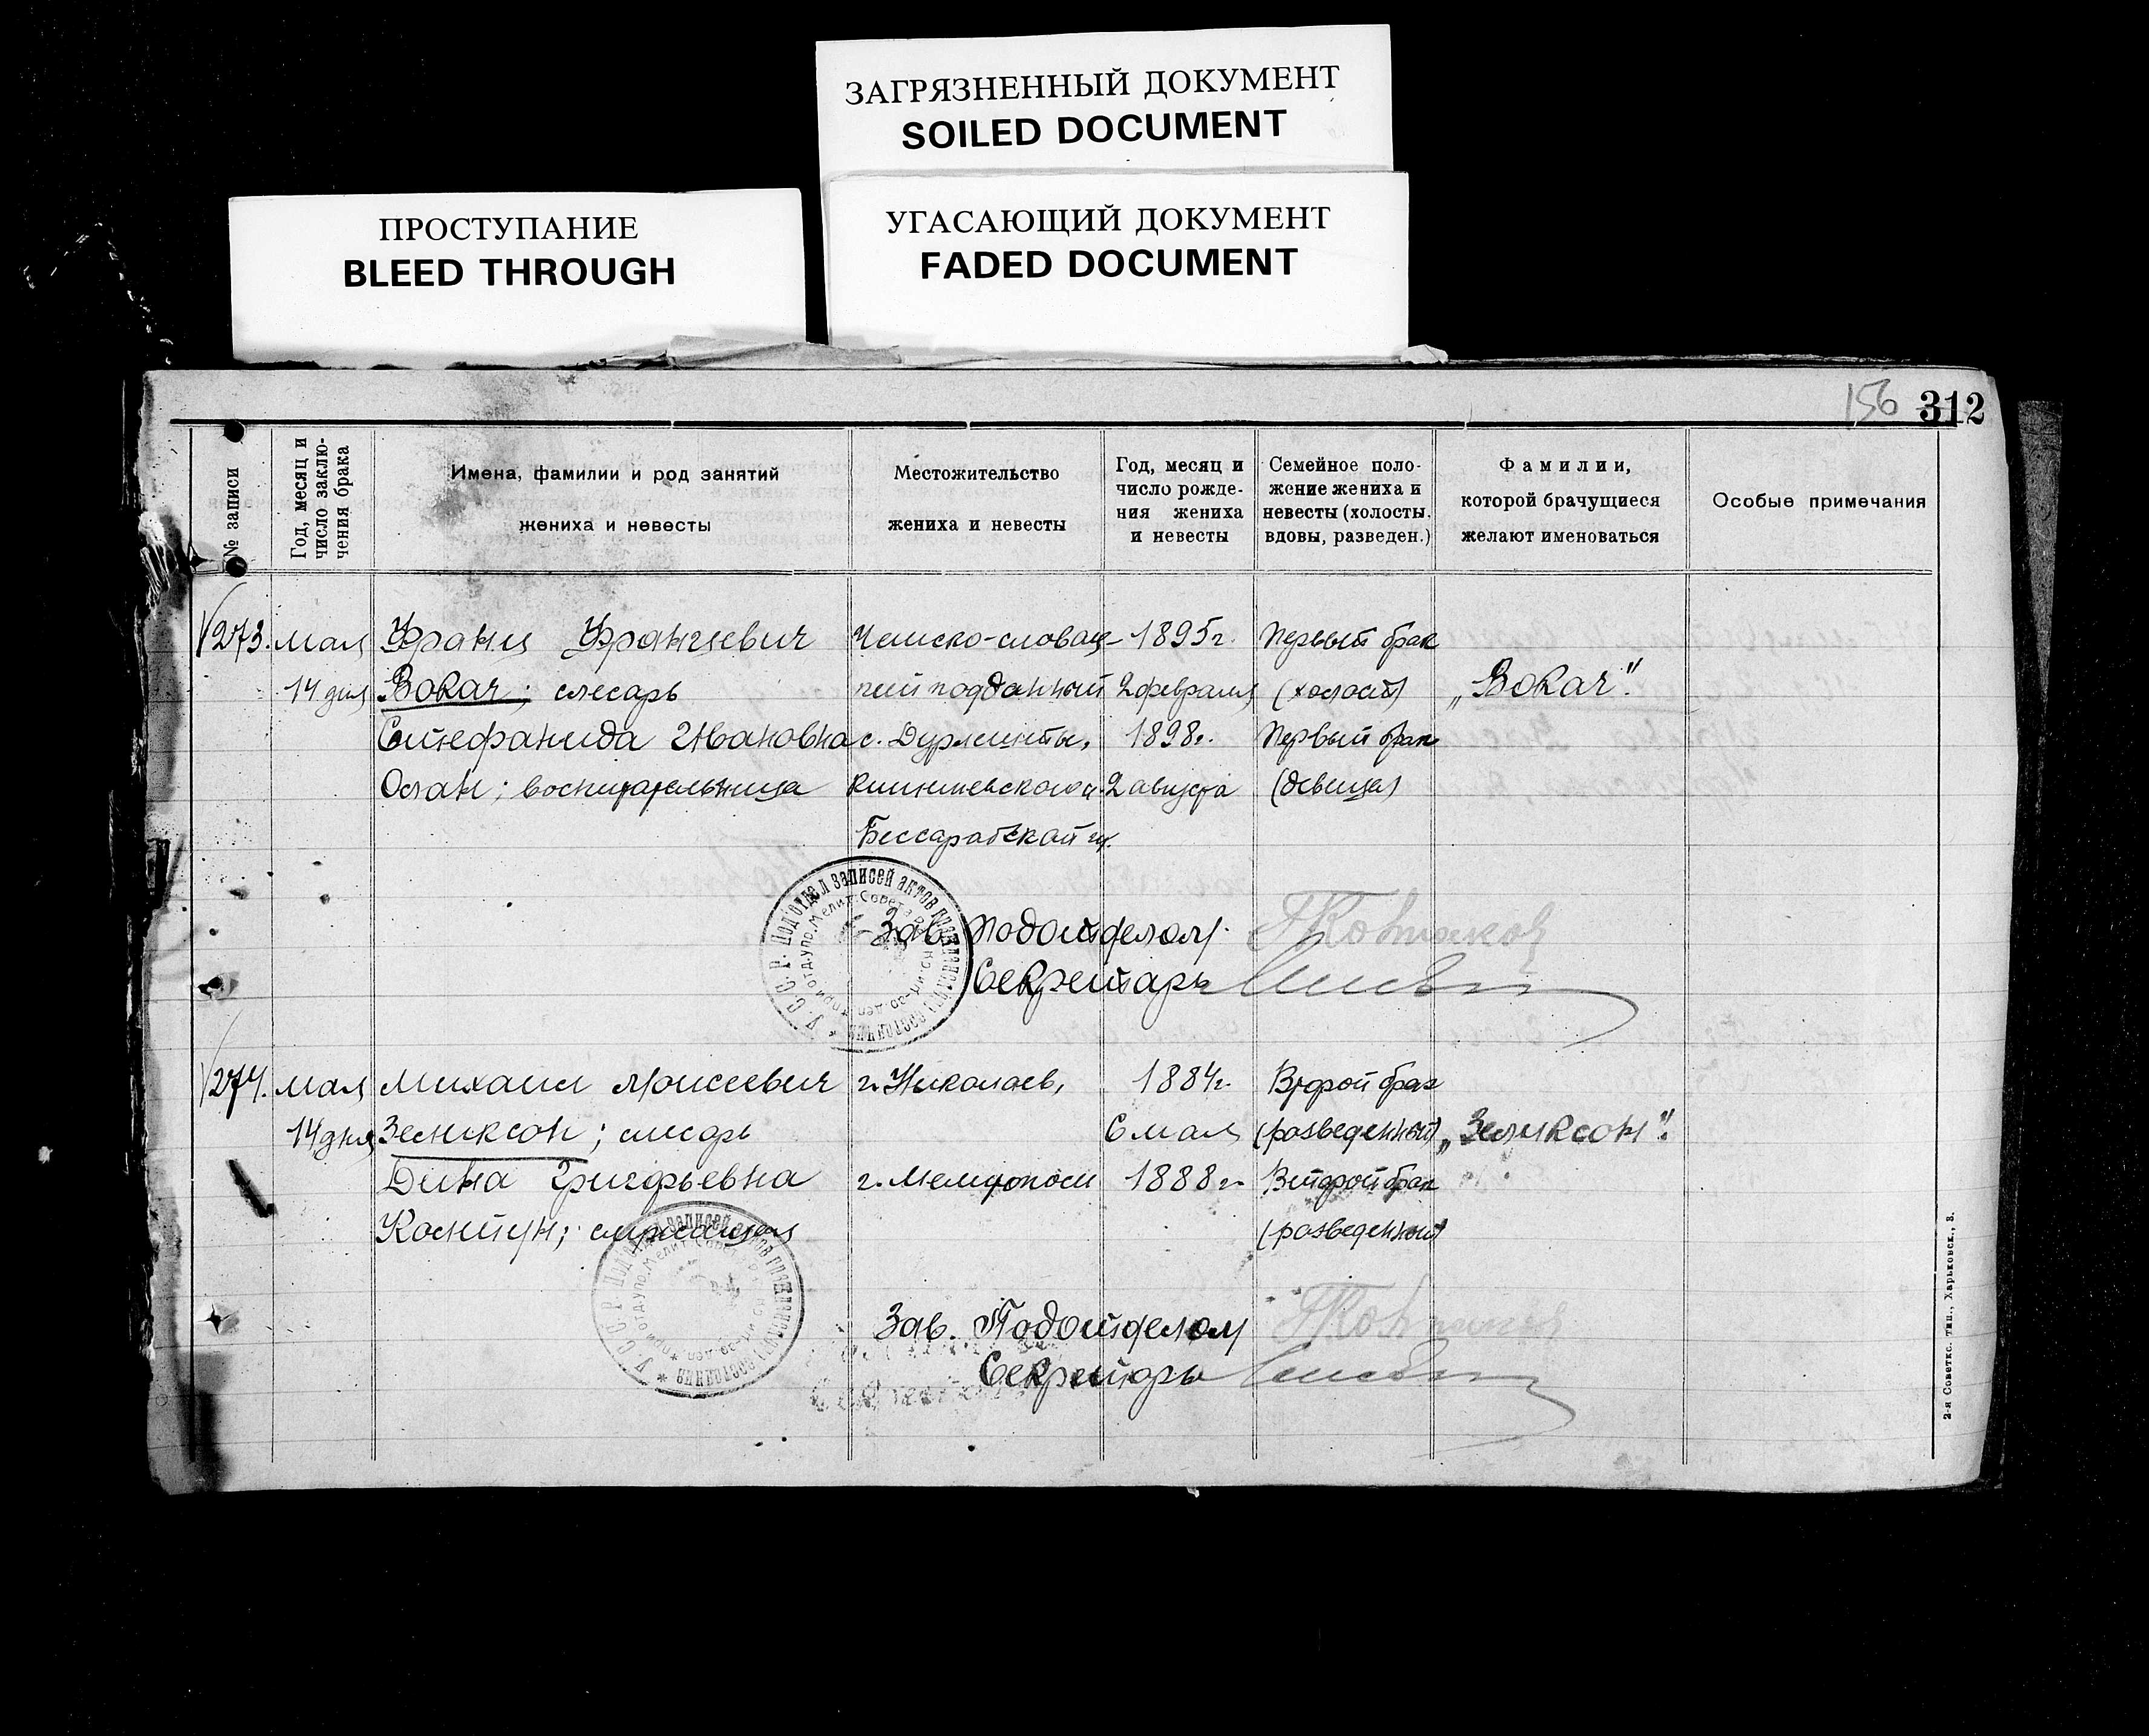 ЗАГРЯЗНЕННЫЙ ДОКУМЕНТ
SOILED DOCUMENT
ПРОСТУПАНИЕ
BLEED THROUGH
УГАСАЮЩИЙ ДОКУМЕНТ
FADED DOCUMENT
156 312
№ записи
Год, месяц и
число заклю-
чения брака
Имена, фамилии и род занятий
жениха и невесты
Местожительство
жениха и невесты
Год, месяц и
число рожде-
ния жениха
и невесты
Семейное поло-
жение жениха и
невесты (холосты,
вдовы, разведен.)
Фамилии,
которой брачущиеся
желают именоваться
Особые примечания
273. мая Франц Францевич Чешско-словац- 1895г. Первый брак
14 дня Вокач; слесарь кий подданный 2 февраля (холост) „Вокач".
Стефанида Ивановна с. Дурлешты, 1898г. Первый брак
Остан; воспитательница Кишиневского у. 2 августа (девица)
Бессарабской г.
Зав. Подотделом
Секретарь
274. мая Михаил Моисеевич г. Николаев, 1884г. Второй брак
14 дня Зеликсон; слесарь 6 мая (разведенный) „Зеликсон".
Дина Григорьевна г. Мелитополь 1888г. Второй брак
; служащая (разведенный)
Зав. Подотделом
Секретарь
У.С.С.Р. Подотдел записей актов гражданского состояния
2-я Советск. тип., Харьковск., 8.